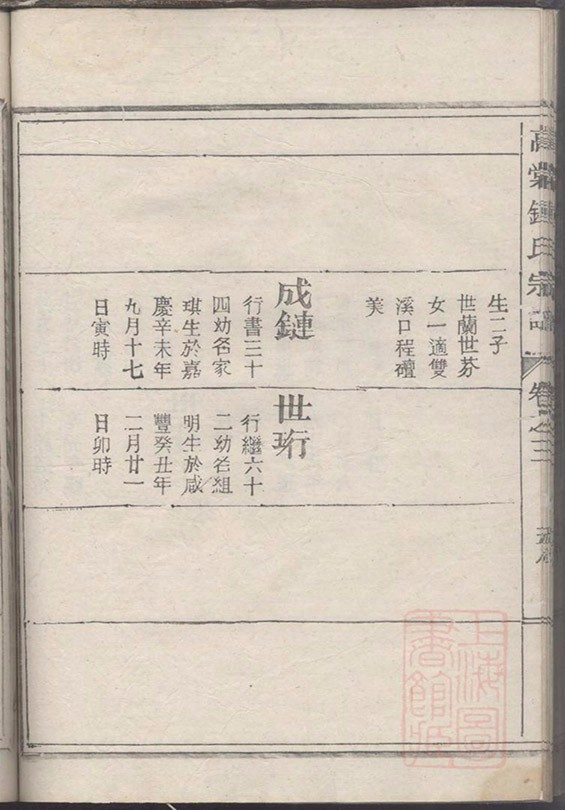 高棠鍾氏宗譜
卷之三
生二子
世蘭世芬
女一適雙
溪口程礵
美
成鏈
行書三十
四幼名家
琪生於嘉
慶辛未年
九月十七
日寅時
世珩
行繼六十
二幼名組
明生於咸
豐癸丑年
二月廿一
日卯時
上海圖
書館藏